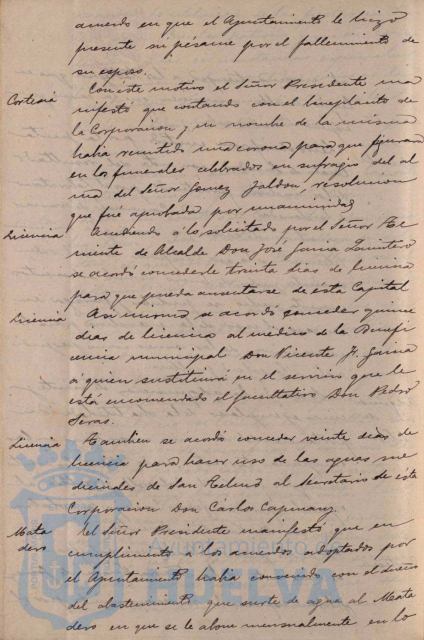 acuerdo en que el Ayuntamiento le hizo
presente su pésame por el fallecimiento de
su esposo.
Cortesia
Con este motivo el Señor Presidente ma
nifestó que contando con el beneplácito de
la Corporacion y en nombre de la misma
habia remitido una corona para que figurara
en los funerales celebrados en sufragio del al
ma del Señor Gomez Jaldon, resolucion
que fué aprobada por unanimidad
Licencia
Accediendo á lo solicitado por el Señor Te
niente de Alcalde Don José Garcia
se acordó concederle treinta dias de licencia
para que pueda ausentarse de esta Capital
Licencia
Asi mismo se acordó conceder quince
dias de licencia al médico de la Benefi
cencia municipal Don Vicente J. Garcia
á quien sustituirá en el servicio que le
está encomendado el facultativo Don Pedro
Seras.
Licencia
Tambien se acordó conceder veinte dias de
licencia para hacer uso de las aguas me
dicinales de San Telmo al Secretario de esta
Corporacion Don Carlos
Mata
dero
El Señor Presidente manifestó que en
cumplimiento á los acuerdos adoptados por
el Ayuntamiento habia convenido con el dueño
del abastecimiento que surte de agua al Mata
dero en que se le abone mensualmente en lo
Ayuntamiento
HUELVA